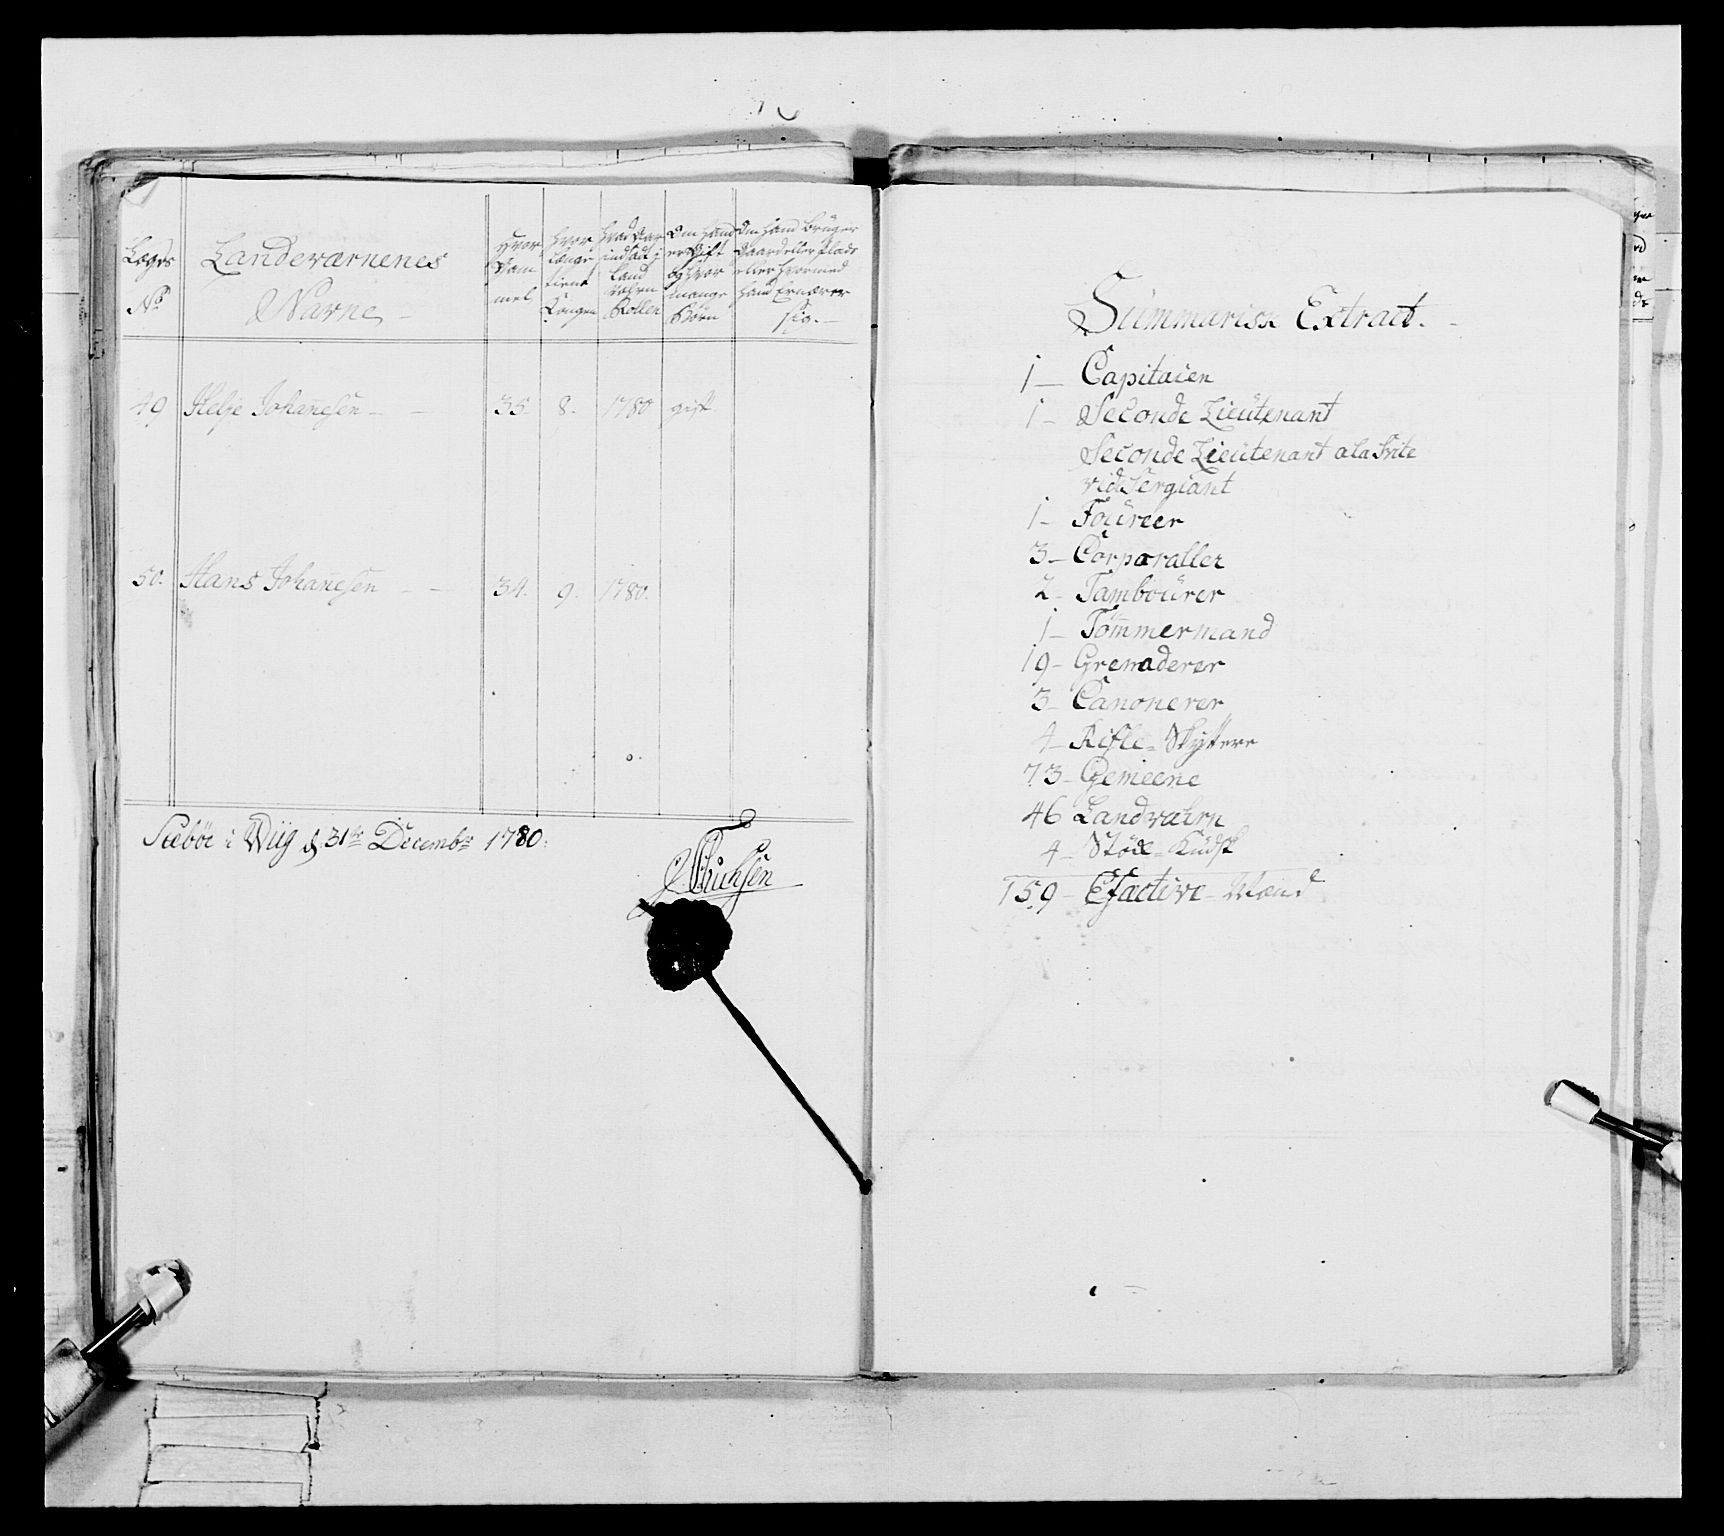 Lægds No
Landeværnenes Navne
Hvor Gam mel
Hvor længe tient Kongen
Hvad Aar indsadt i Land Værn Rollen
Om Hand er Gift og Hvor mange Børn
Om Hand Brüger Gaard eller Plads eller Hvormed Hand Ernærer sig.
49 Helje Johañesen - - 35. 8. 1780 gift
50. Hans Johañesen - - 34. 9. 1780.
Sæbøe i Wiig d 31te Decembr 1780.
Summarisk Extract.
1 - Capitaien
1 - Seconde Lieutenant
Seconde Lieutenant a la Svite
vid Sergiant
1 - Foureer
3 - Corporaller
2 - Tambourer
1 - Tømmermand
19 - Grenaderer
3 - Canonerer
4 - Rifle - Skyttere
73 - Gemeene
46 Landværn
4 - Støk - Kudsk
159 - Efactive - Mand